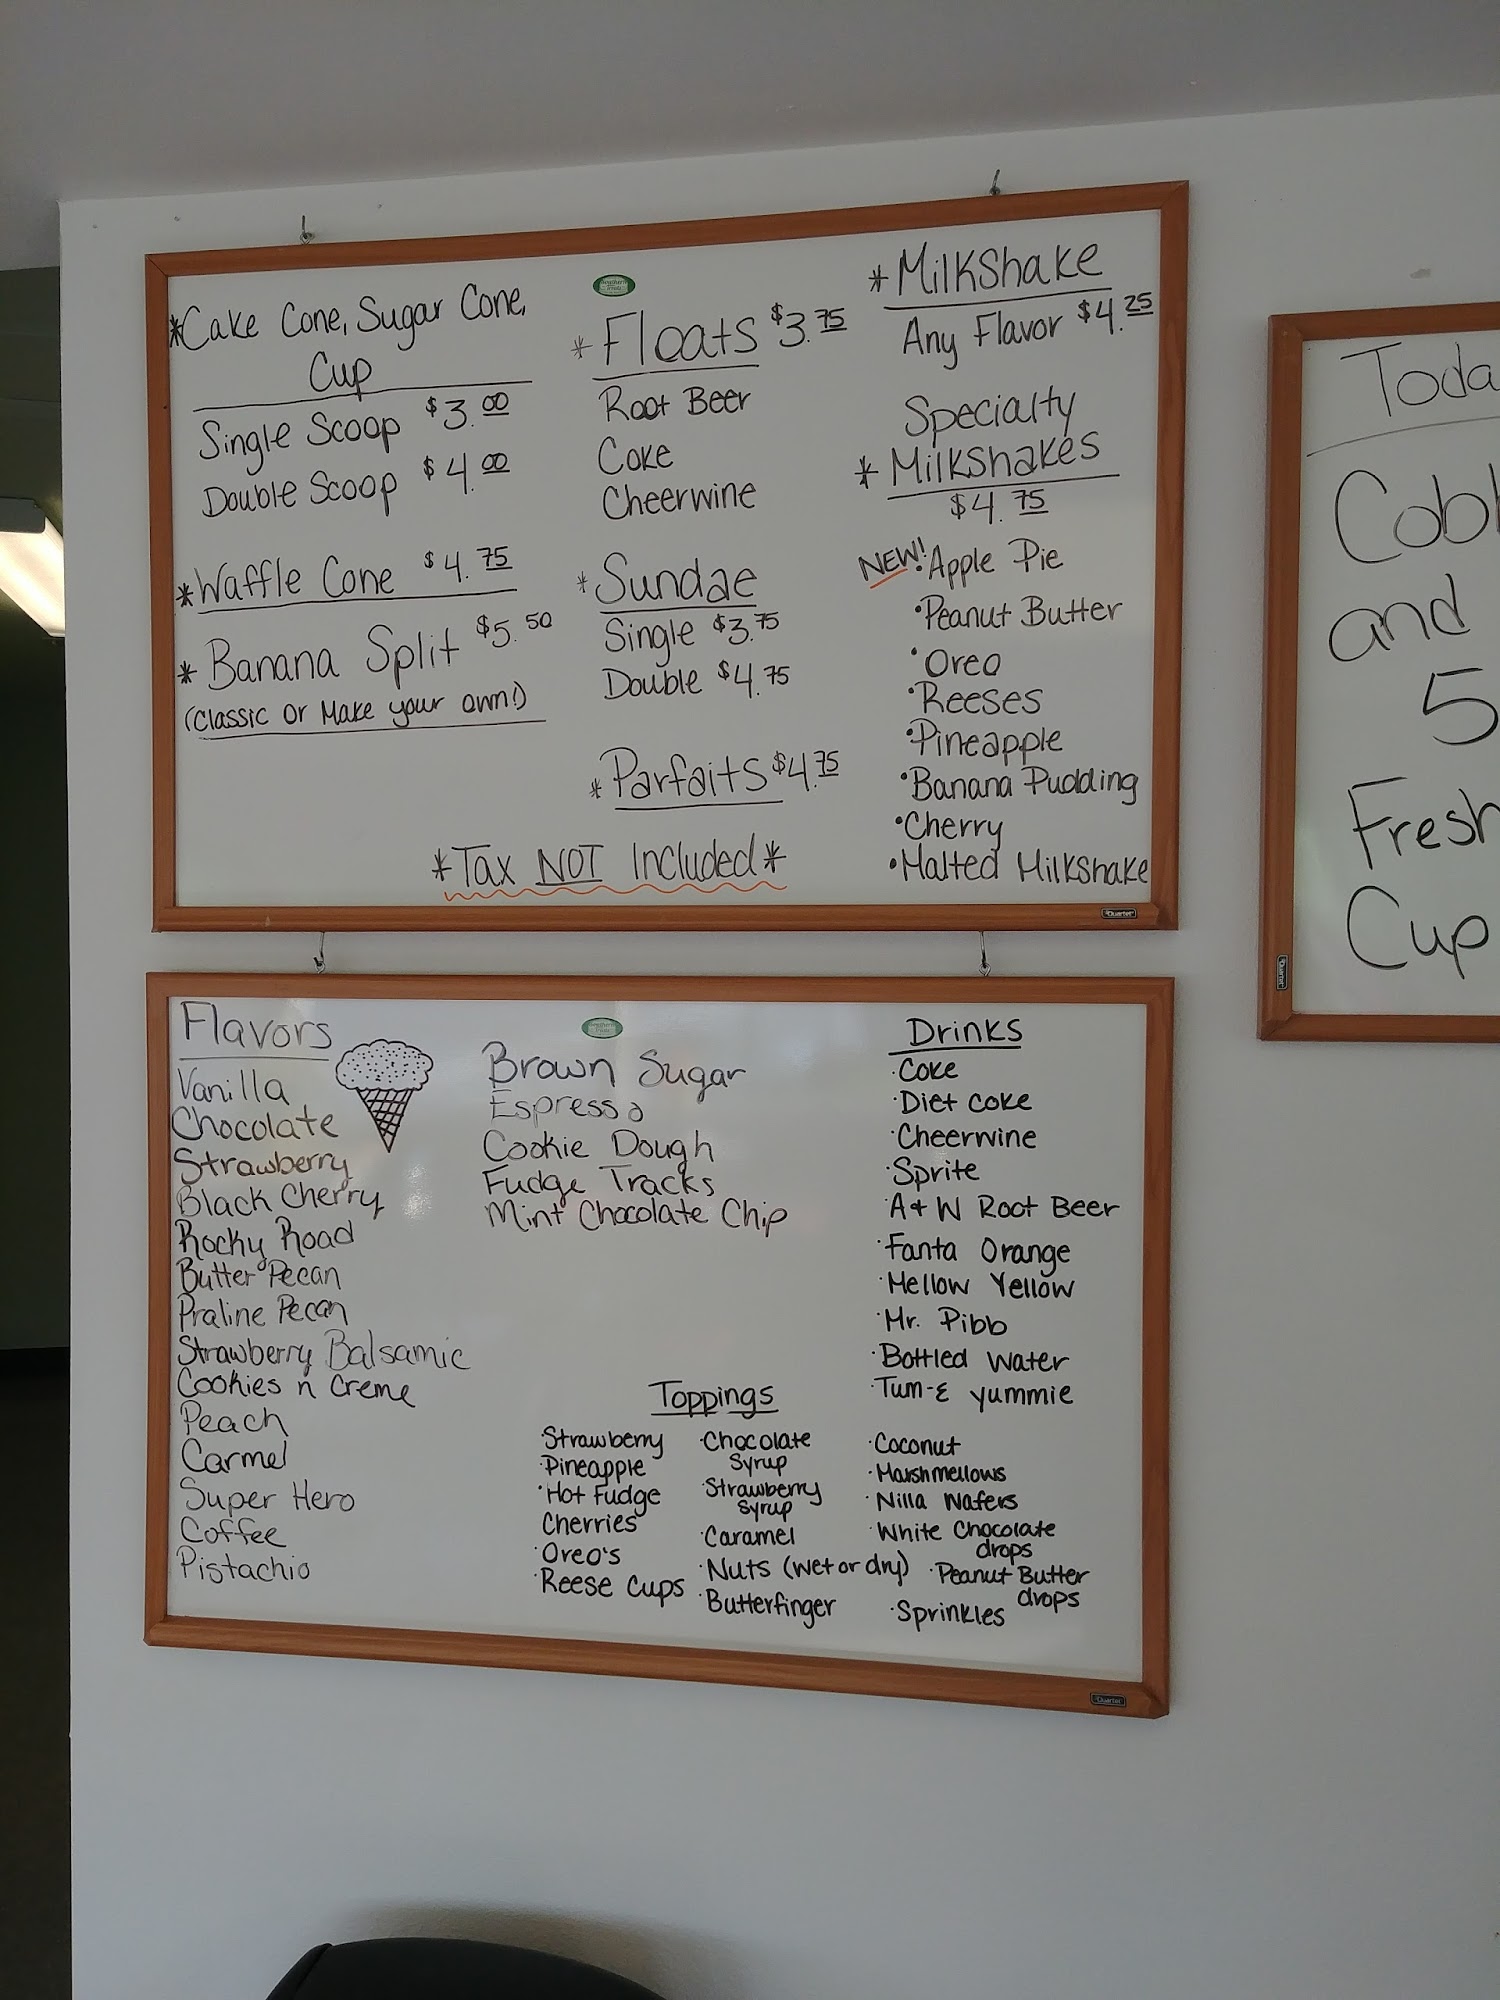 *Cake Cone, Sugar Cone,
Cup
Single Scoop $3.00
Double Scoop $4.00
*Waffle Cone $4.75
*Banana Split $5.50
(Classic or Make your own!)
*Floats $3.75
Root Beer
Coke
Cheerwine
*Sundae
Single $3.75
Double $4.75
*Parfaits $4.75
*Milkshake
Any Flavor $4.25
Specialty
*Milkshakes
$4.75
NEW! •Apple Pie
•Peanut Butter
•Oreo
•Reeses
•Pineapple
•Banana Pudding
•Cherry
•Malted Milkshake
*Tax NOT Included*
Quartet
Flavors
Vanilla
Chocolate
Strawberry
Black Cherry
Rocky Road
Butter Pecan
Praline Pecan
Strawberry Balsamic
Cookies n Creme
Peach
Carmel
Super Hero
Coffee
Pistachio
Brown Sugar
Espresso
Cookie Dough
Fudge Tracks
Mint Chocolate Chip
Drinks
•Coke
•Diet Coke
•Cheerwine
•Sprite
•A&W Root Beer
•Fanta Orange
•Mellow Yellow
•Mr. Pibb
•Bottled Water
•Tum-E yummie
Toppings
•Strawberry
•Pineapple
•Hot Fudge
Cherries
•Oreo's
•Reese Cups
•Chocolate
Syrup
•Strawberry
Syrup
•Caramel
•Nuts (wet or dry)
•Butterfinger
•Coconut
•Marshmellows
•Nilla Wafers
•White Chocolate
drops
•Peanut Butter
drops
•Sprinkles
Quartet
Toda
Cobb
and
5
Fresh
Cup
Quartet